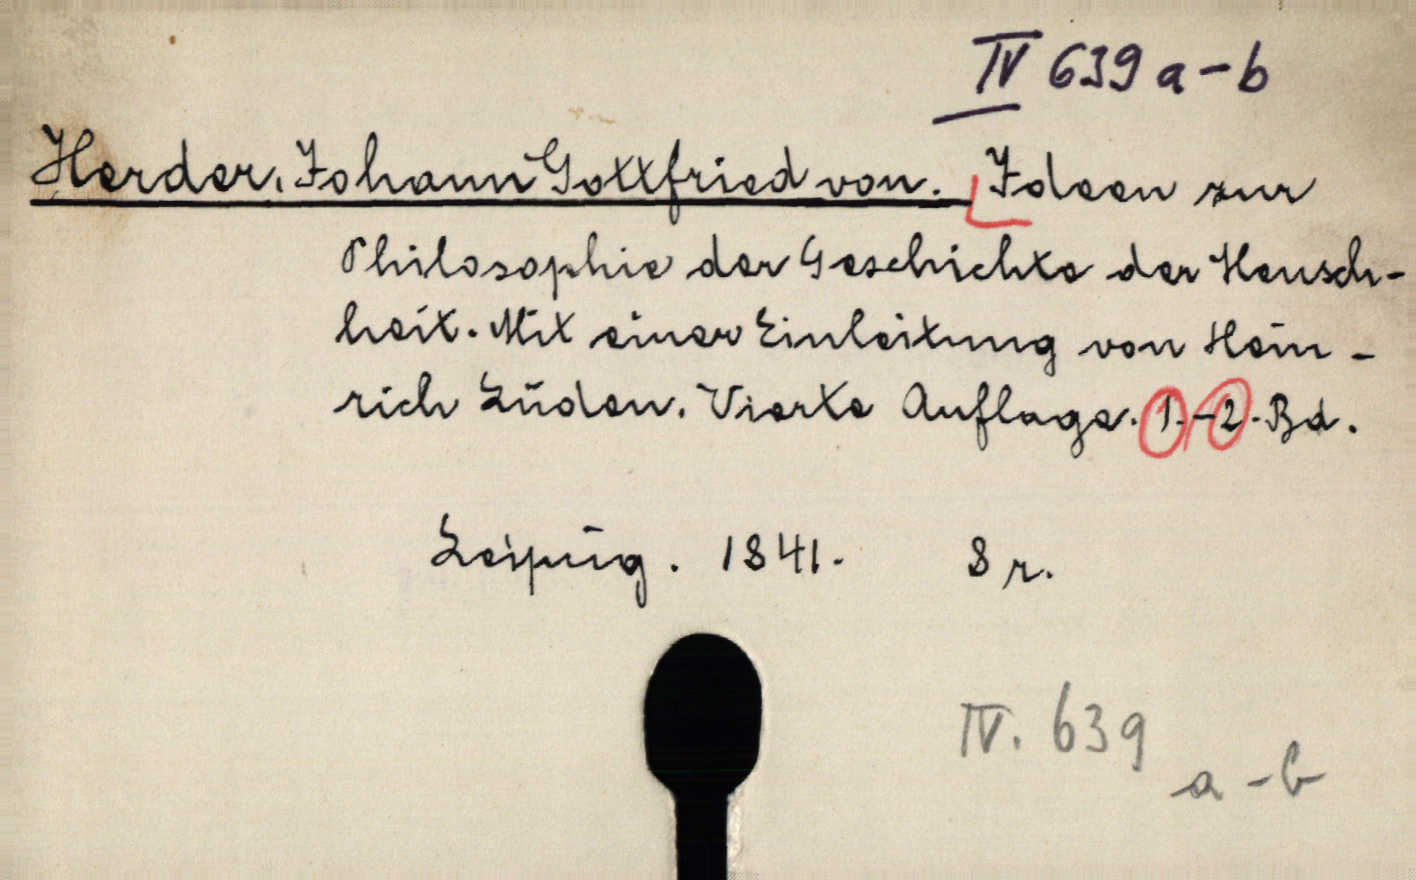 IV 639 a-b
Herder, Johann Gottfried von. Ideen zur
Philosophie der Geschichte der Mensch-
heit. Mit einer Einleitung von Hein-
rich Lüden. Vierte Auflage. 1.-2. Bd.
Leipzig. 1841. 8 r.
IV. 639
a-b